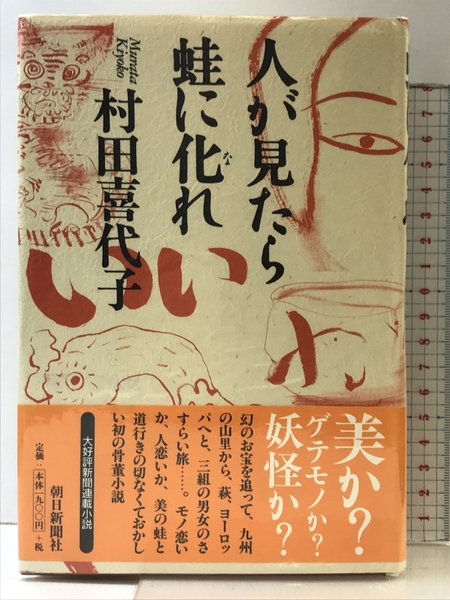 人が見たら
蛙に化れ
な
村田喜代子
Murata
Kiyoko
美か?
ゲテモノか?
妖怪か?
幻のお宝を追って、九州
の山里から、萩、ヨーロッ
パへと、三組の男女のさ
すらい旅……。モノ恋い
か、人恋いか、美の蛙と
道行きの切なくておかし
い初の骨董小説
大好評新聞連載小説
定価:本体一九〇〇円+税
朝日新聞社